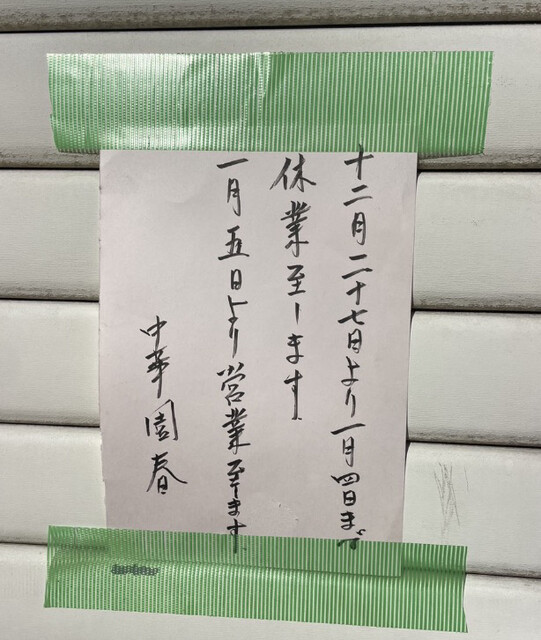 十二月二十七日より一月四日まで
休業至します
一月五日より営業至します
中華園春